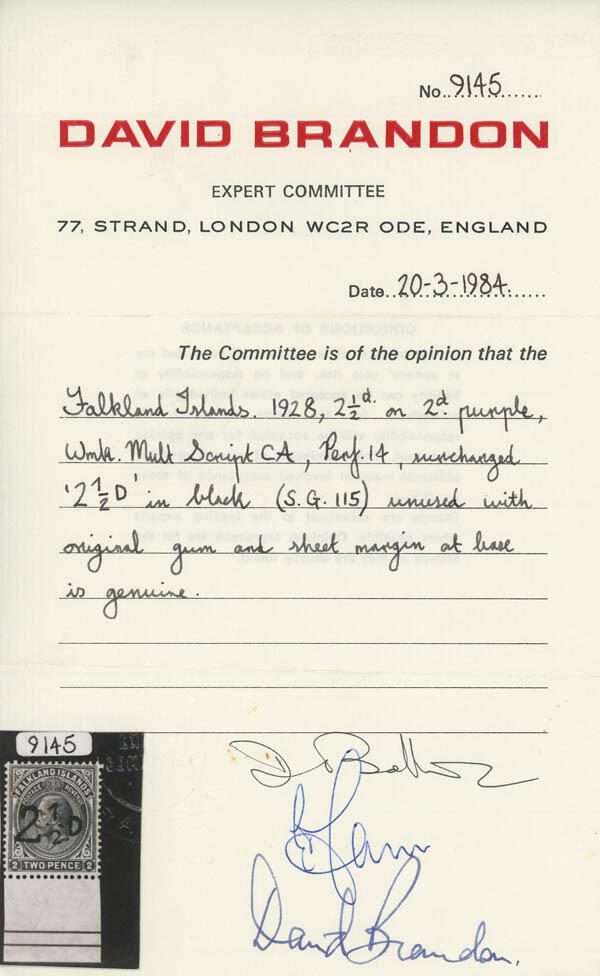 No..9145........
DAVID BRANDON
EXPERT COMMITTEE
77, STRAND, LONDON WC2R ODE, ENGLAND
Date..20-3-1984.......
CONDITIONS OF ACCEPTANCE
The Committee is of the opinion that the
Falkland Islands. 1928, 2½d. on 2d. purple,
Wmk. Mult Script CA, Perf. 14, surcharged
'2½D' in black (S.G. 115) unused with
original gum and sheet margin at base
is genuine.
9145
FALKLAND ISLANDS
POSTAGE REVENUE
2½D
2 TWO PENCE 2
David Brandon.